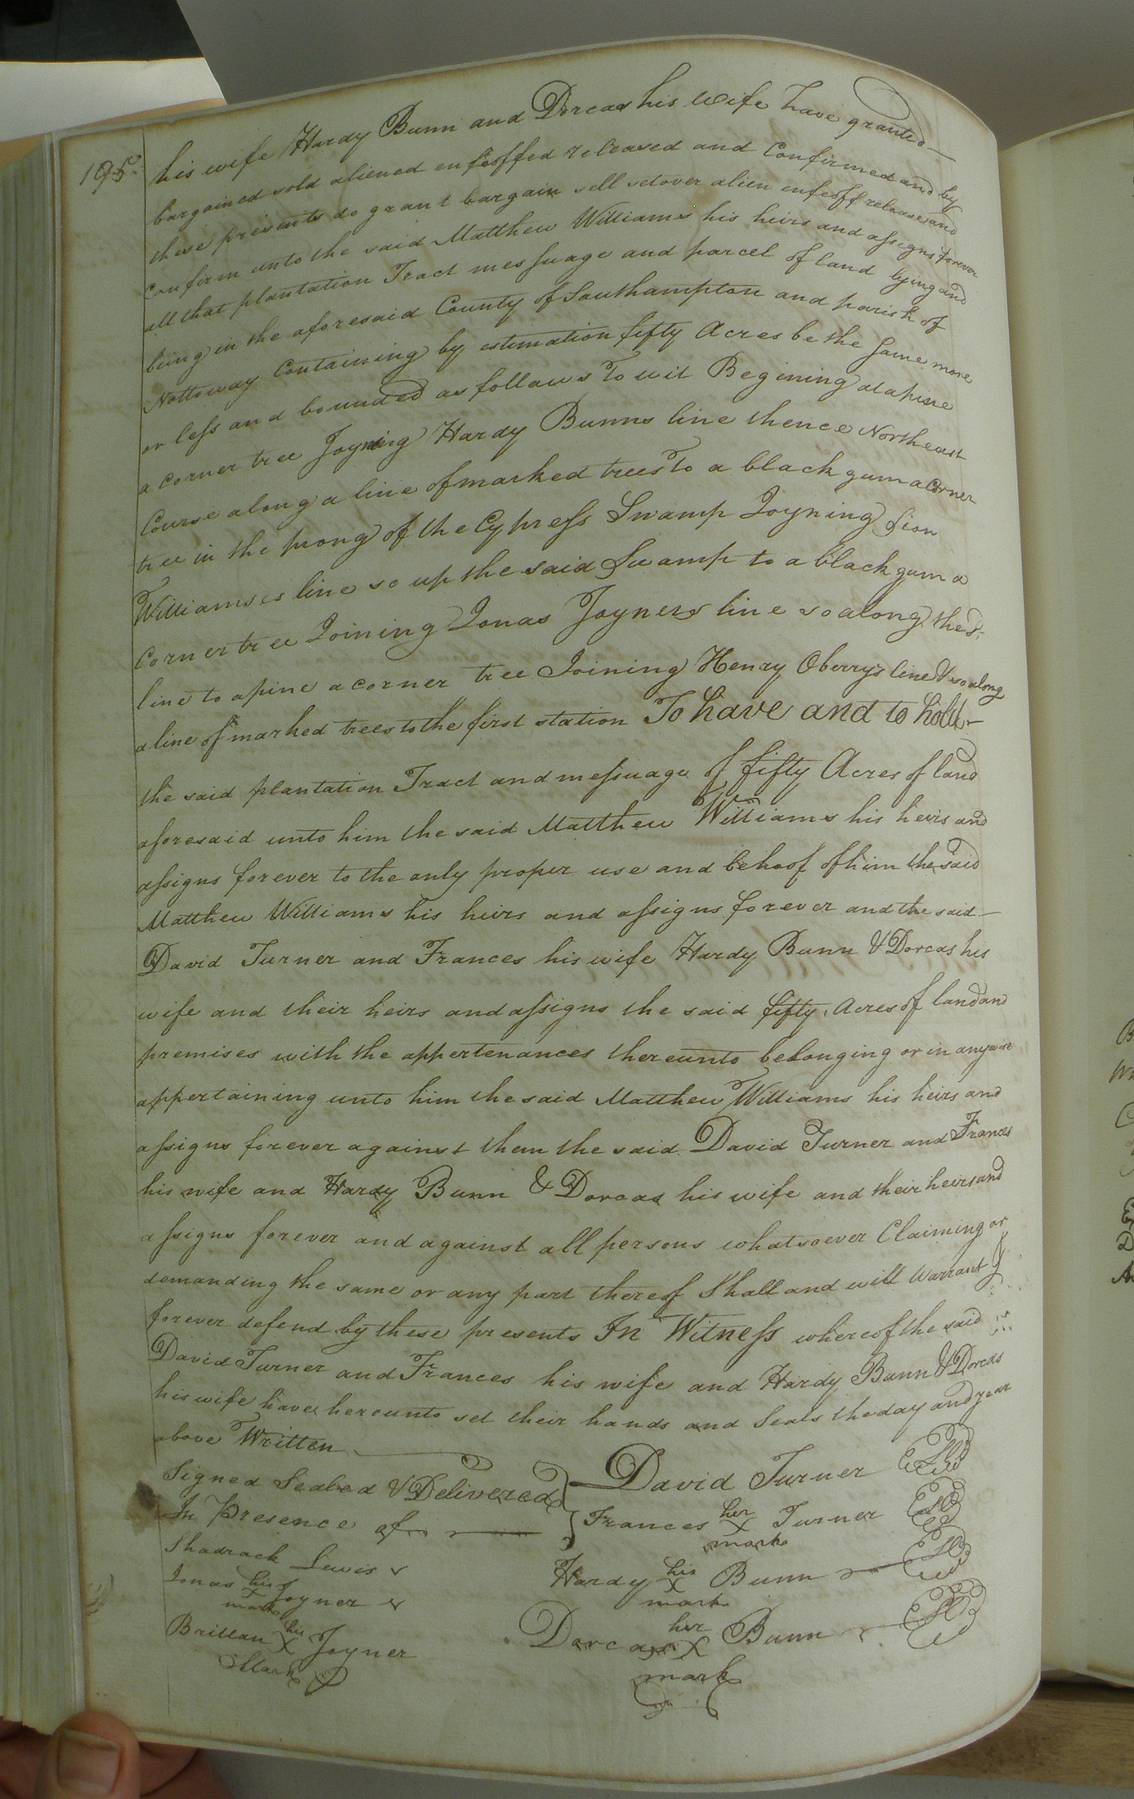 195.
his wife Hardy Bunn and Dorcas his wife have granted
bargained sold aliened enfeoffed released and Confirmed and by
these presents do grant bargain sell setover alien enfeoff release and
confirm unto the said Matthew Williams his heirs and assigns forever
all that plantation Tract messuage and parcel of land lying and
being in the aforesaid County of Southampton and parish of
Nottoway Containing by estimation fifty Acres be the same more
or less and bounded as follows To wit Begining at a pine
a corner tree Joyning Hardy Bunns line thence Northeast
Course along a line of marked trees To a black gum a Corner
tree in the prong of the Cypress Swamp Joyning Sion
Williamses line so up the said Swamp to a black gum a
Corner tree Joining Jonas Joyners line so along the sd.
line to a pine a corner tree Joining Henry Oberry's line & so along
a line of marked trees to the first station To have and to hold
the said plantation Tract and messuage of fifty Acres of land
aforesaid unto him the said Matthew Williams his heirs and
assigns forever to the only proper use and behoof of him the said
Matthew Williams his heirs and assigns forever and the said
David Turner and Frances his wife Hardy Bunn & Dorcas his
wife and their heirs and assigns the said fifty Acres of land and
premises with the appertenances thereunto belonging or in anywise
appertaining unto him the said Matthew Williams his heirs and
assigns forever against them the said David Turner and Frances
his wife and Hardy Bunn & Dorcas his wife and their heirs and
assigns forever and against all persons whatsoever Claiming or
demanding the same or any part thereof Shall and will Warrant &
forever defend by these presents In Witness whereof the said
David Turner and Frances his wife and Hardy Bunn & Dorcas
his wife have hereunto set their hands and Seals the day and year
above Written
Signed Sealed & Delivered David Turner
In Presence of Frances her X mark Turner
Shadrack Lewis
Hardy his X mark Bunn
Jonas his mark Joyner
Dorcas her X mark Bunn
Brittan his X Mark Joyner